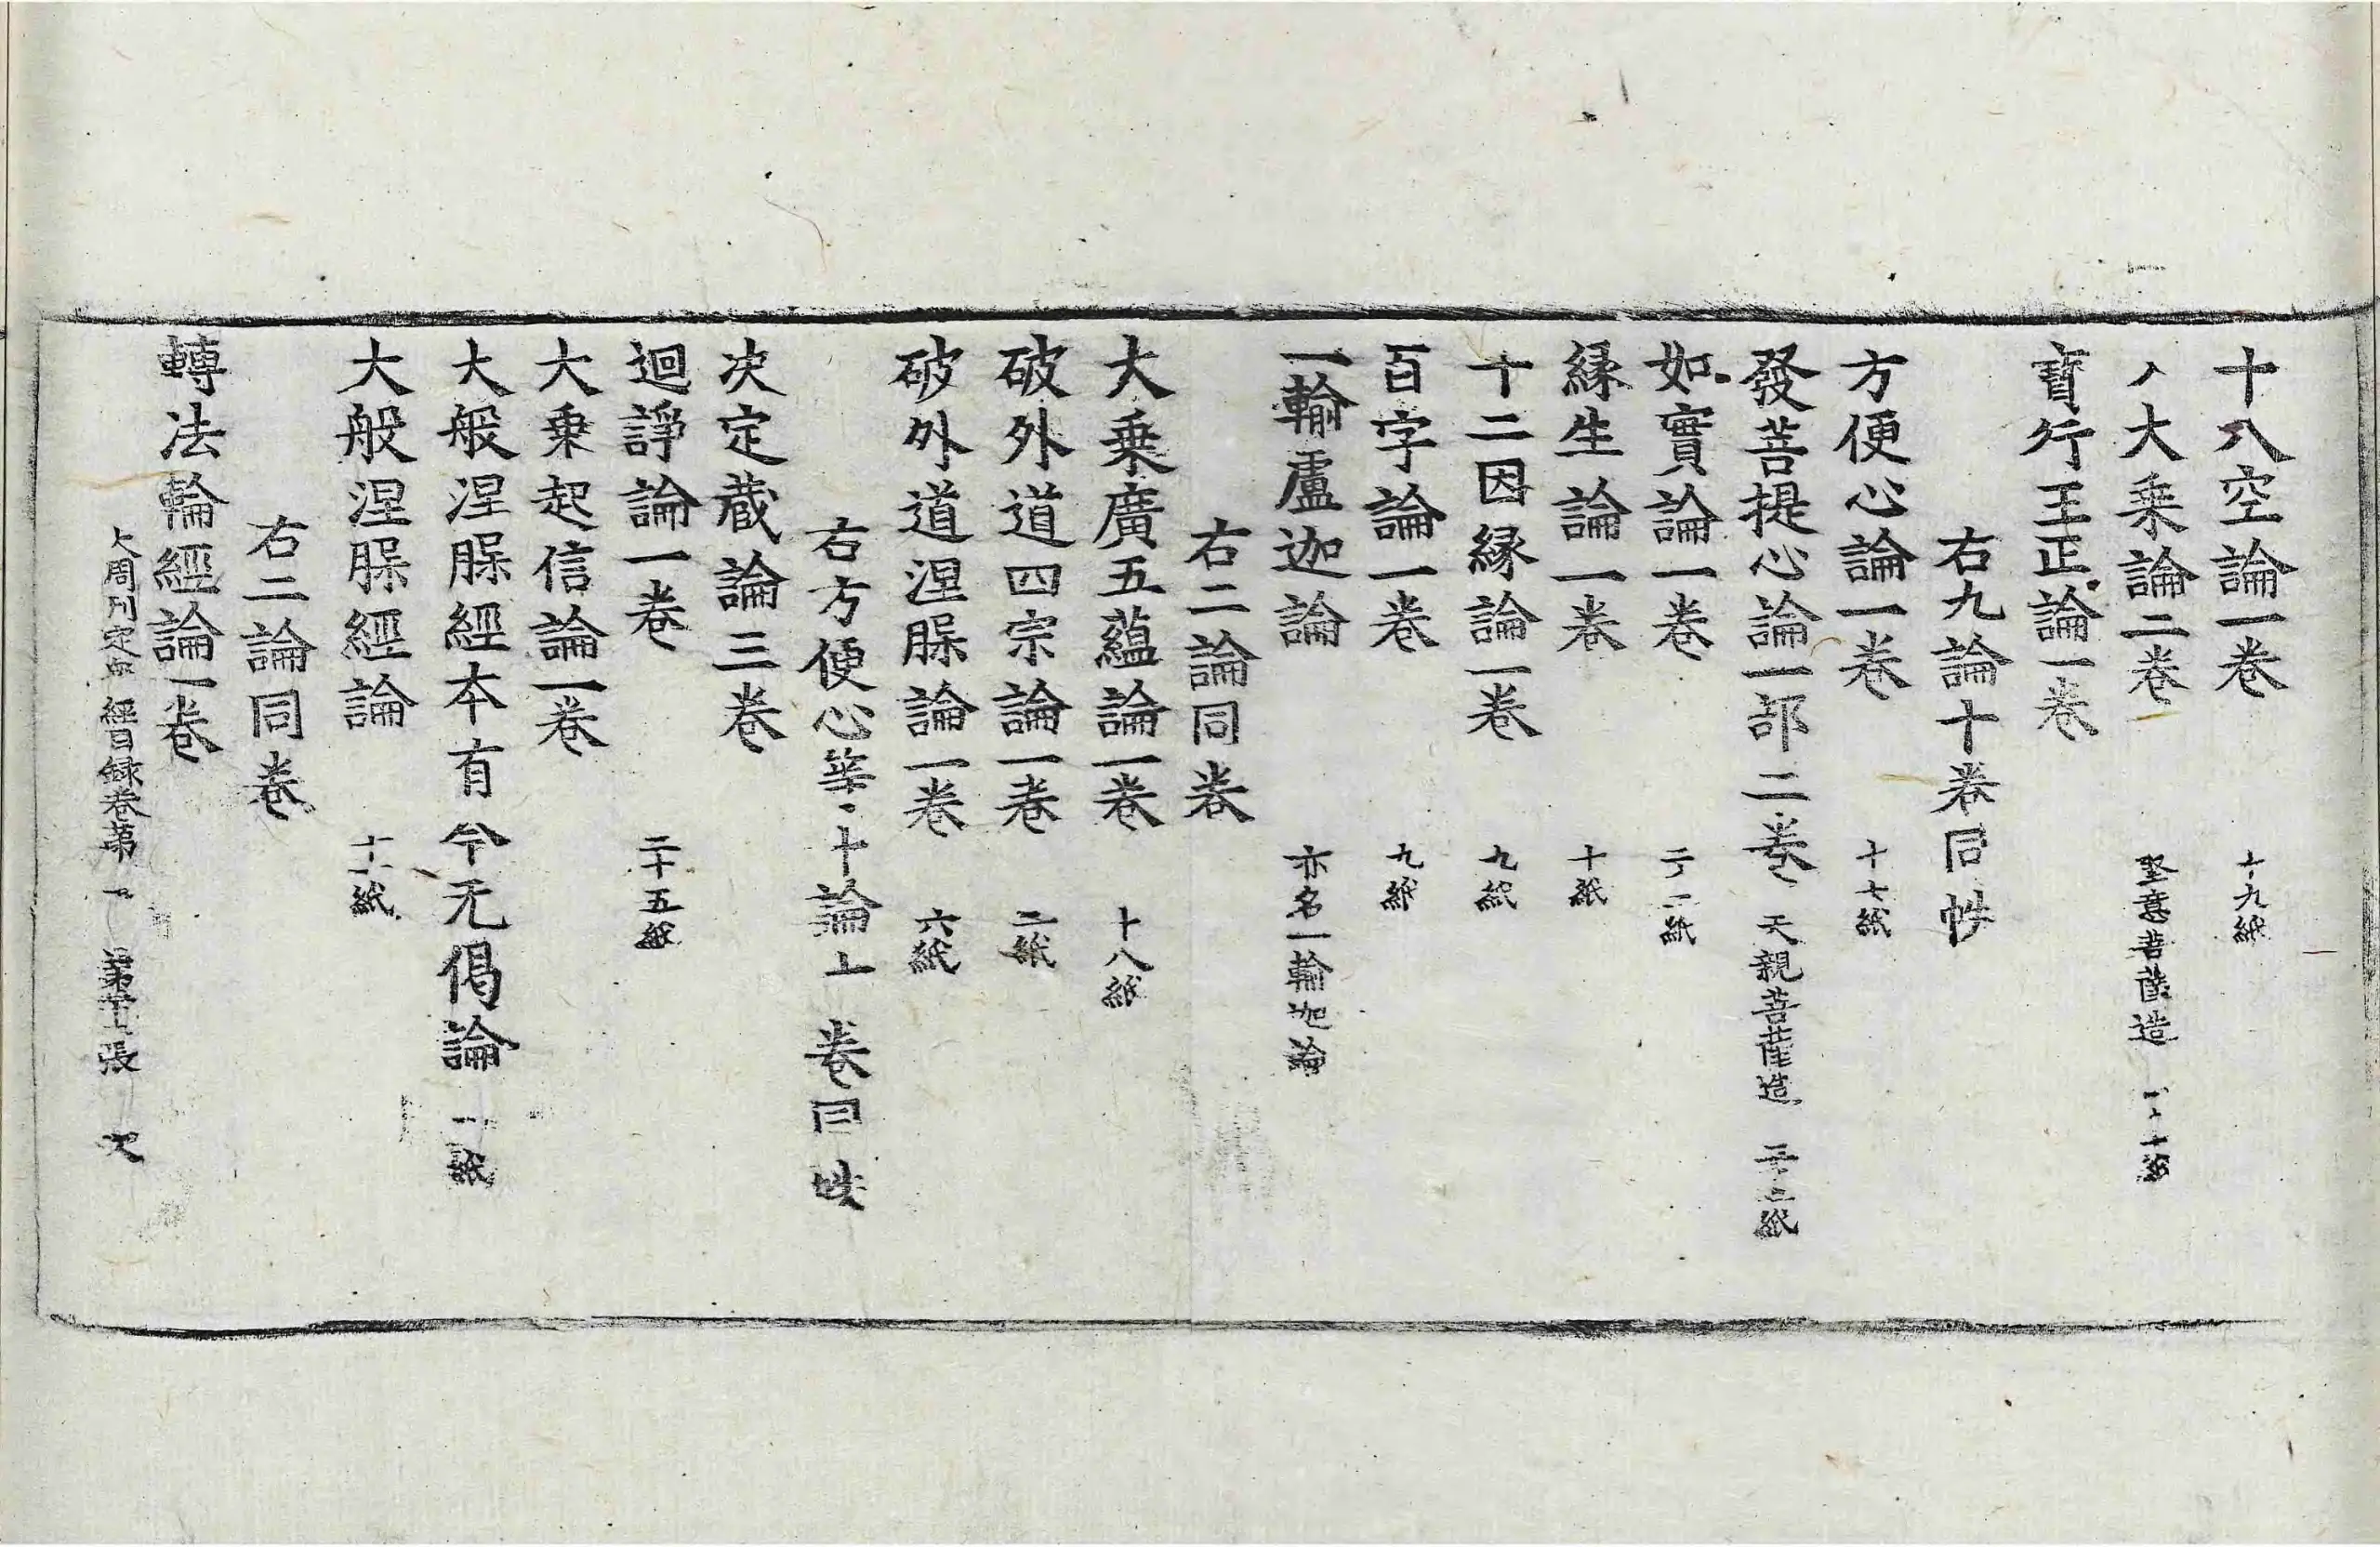 十八空論一卷 十九紙
大乘論二卷 堅意菩薩造
寶行王正論一卷
右九論十卷同帙
方便心論一卷 十七紙
發菩提心論一部二卷 天親菩薩造 紙
如實論一卷 紙
緣生論一卷 十紙
十二因緣論一卷 九紙
百字論一卷 九紙
一輸盧迦論 亦名一輸迦論
右二論同卷
大乘廣五蘊論一卷 十八紙
破外道四宗論一卷 二紙
破外道涅槃論一卷 六紙
右方便心等十論 卷同帙
決定藏論三卷
迴諍論一卷 二十五紙
大乘起信論一卷
大般涅槃經本有今无偈論 紙
大般涅槃經論 紙
右二論同卷
轉法輪經論一卷
大周刊定衆經目録卷第 第 張